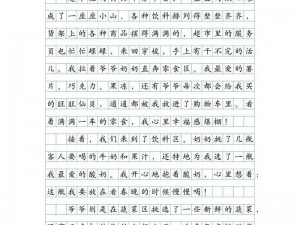 成了一座座小山，各种饮料排列得整整齐齐，
货架上的各种商品摆得满满的。超市里的服务
员也忙忙碌碌，来回穿梭，手上有干不完的活
儿。我拉着爷爷奶奶直奔零食区。我最爱的薯
片、巧克力、果冻，还有爷爷每次都会给我买
的旺旺仙贝，通通都被我放进了购物车里。看
着满满一车的零食，我心里幸福爆棚！
接着，我们来到了饮料区。奶奶挑了几瓶
客人要喝的牛奶和果汁，还特地为我选了一瓶
我最爱的酸奶，我开心得蹦了起来，心里想着：
这瓶我要放在看春晚的时候慢慢喝！
爷爷则是在蔬菜区挑选了一些新鲜的蔬菜，